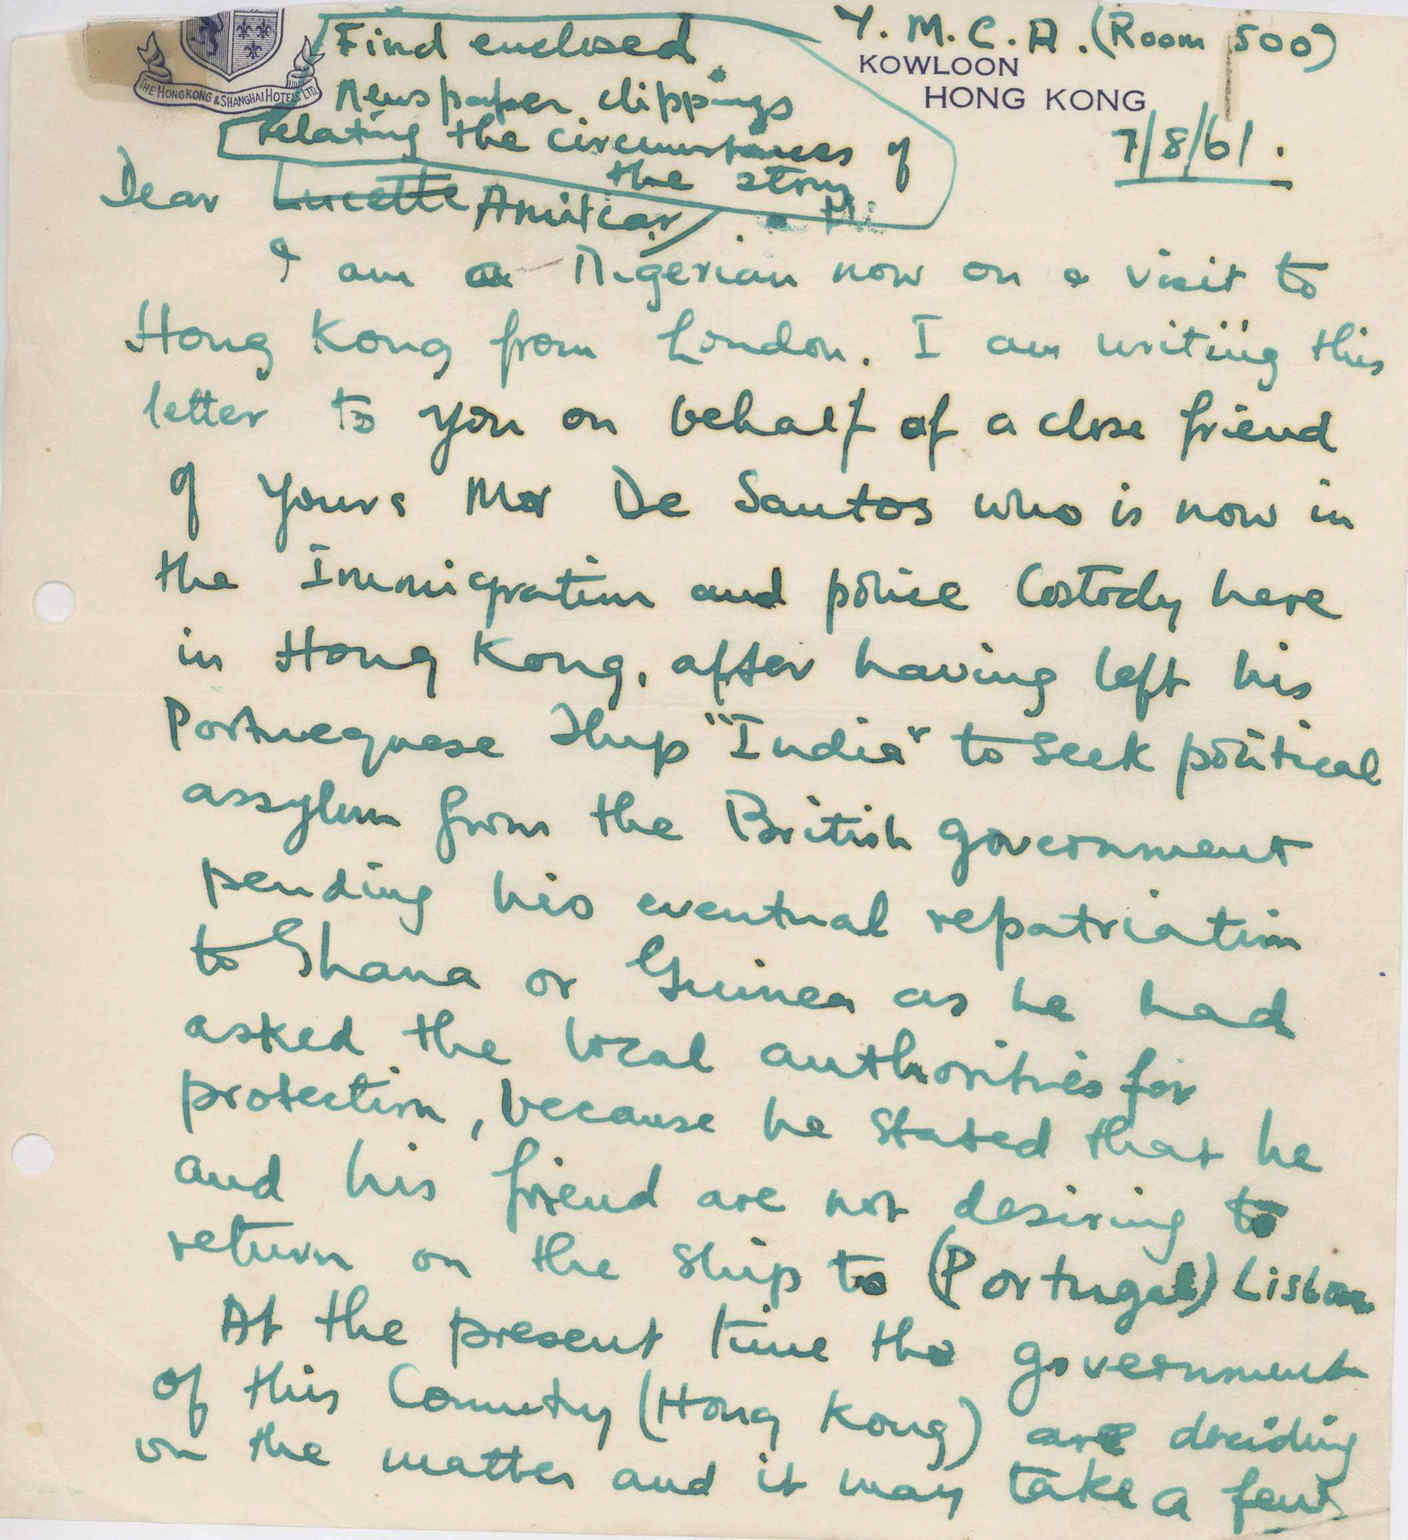 THE HONGKONG & SHANGHAI HOTELS LTD
Find enclosed
Newspaper clippings
relating the circumstances of
the story
Y. M. C. A. (Room 500)
KOWLOON
HONG KONG
7/8/61.
Dear Lucette Amilcar,
I am a Nigerian now on a visit to
Hong Kong from London. I am writing this
letter to you on behalf of a close friend
of yours Mr De Santos who is now in
the Immigration and police Costody here
in Hong Kong, after having left his
Portueguese Ship "India" to seek political
assylum from the British government
pending his eventual repatriation
to Ghana or Guinea as he had
asked the local authorities for
protection, because he stated that he
and his friend are not desiring to
return on the ship to (Portugal) Lisbon
At the present time the government
of this Country (Hong Kong) are deciding
on the matter and it may take a few